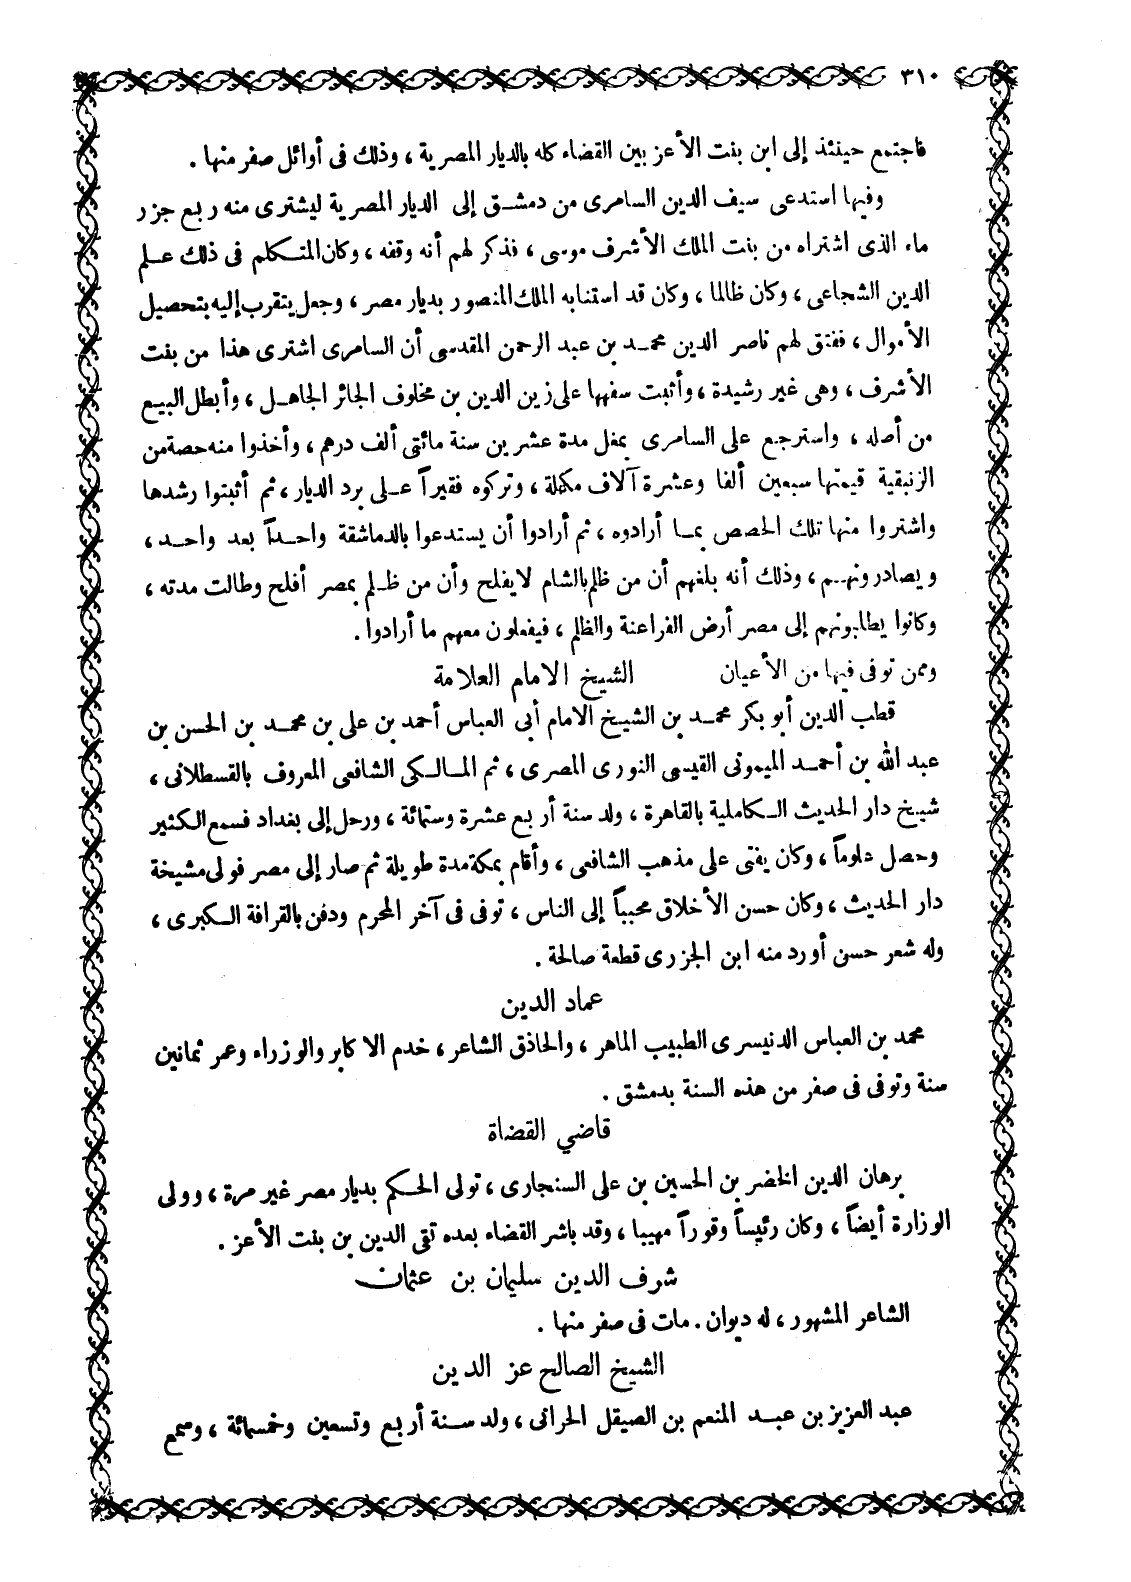 ٣١٠
فاجتمع حينئذ إلى ابن بنت الأعز بين القضاء كله بالديار المصرية ، وذلك فى أوائل صفر منها .
وفيها استدعى سيف الدين السامرى من دمشق إلى الديار المصرية ليشترى منه ربع جزر
ماء الذى اشتراه من بنت الملك الأشرف موسى ، فذكر لهم أنه وقفه ، وكان المتكلم فى ذلك علم
الدين الشجاعى ، وكان ظالما ، وكان قد استنابه الملك المنصور بديار مصر ، وجعل يتقرب إليه بتحصيل
الأموال ، ففتق لهم ناصر الدين محمد بن عبد الرحمن المقدسى أن السامرى اشترى هذا من بنت
الأشرف ، وهى غير رشيدة ، وأثبت سفهها على زين الدين بن مخلوف الجائر الجاهل ، وأبطل البيع
من أصله ، واسترجع على السامرى بمغل مدة عشرين سنة مائتى ألف درهم ، وأخذوا منه حصة من
الزنبقية قيمتها سبعين ألفا وعشرة آلاف مكملة ، وتركوه فقيراً على برد الديار ، ثم أثبتوا رشدها
واشتروا منها تلك الحصص بما أرادوه ، ثم أرادوا أن يستدعوا بالدماشقة واحداً بعد واحد ،
ويصادرونهم ، وذلك أنه بلغهم أن من ظلم بالشام لا يفلح وأن من ظلم بمصر أفلح وطالت مدته ،
وكانوا يطالبونهم إلى مصر أرض الفراعنة والظلم ، فيفعلون معهم ما أرادوا .
وممن توفى فيها من الأعيان الشيخ الامام العلامة
قطب الدين أبو بكر محمد بن الشيخ الامام أبى العباس أحمد بن على بن محمد بن الحسن بن
عبد الله بن أحمد الميمونى القيسى النورى المصرى ، ثم المالكى الشافعى المعروف بالقسطلانى ،
شيخ دار الحديث الكاملية بالقاهرة ، ولد سنة أربع عشرة وستمائة ، ورحل إلى بغداد فسمع الكثير
وحصل علوماً ، وكان يفتى على مذهب الشافعى ، وأقام بمكة مدة طويلة ثم صار إلى مصر فولى مشيخة
دار الحديث ، وكان حسن الأخلاق محبباً إلى الناس ، توفى فى آخر المحرم ودفن بالقرافة الكبرى ،
وله شعر حسن أورد منه ابن الجزرى قطعة صالحة .
عماد الدين
محمد بن العباس الدنيسرى الطبيب الماهر ، والحاذق الشاعر ، خدم الاكابر والوزراء وعمر ثمانين
سنة وتوفى فى صفر من هذه السنة بدمشق .
قاضي القضاة
برهان الدين الخضر بن الحسين بن على السنجارى ، تولى الحكم بديار مصر غير مرة ، وولى
الوزارة أيضاً ، وكان رئيساً وقوراً مهيبا ، وقد باشر القضاء بعده تقى الدين بن بنت الأعز .
شرف الدين سليمان بن عثمان
الشاعر المشهور ، له ديوان . مات فى صفر منها .
الشيخ الصالح عز الدين
عبد العزيز بن عبد المنعم بن الصيقل الحرانى ، ولد سنة أربع وتسعين وخمسمائة ، وسمع